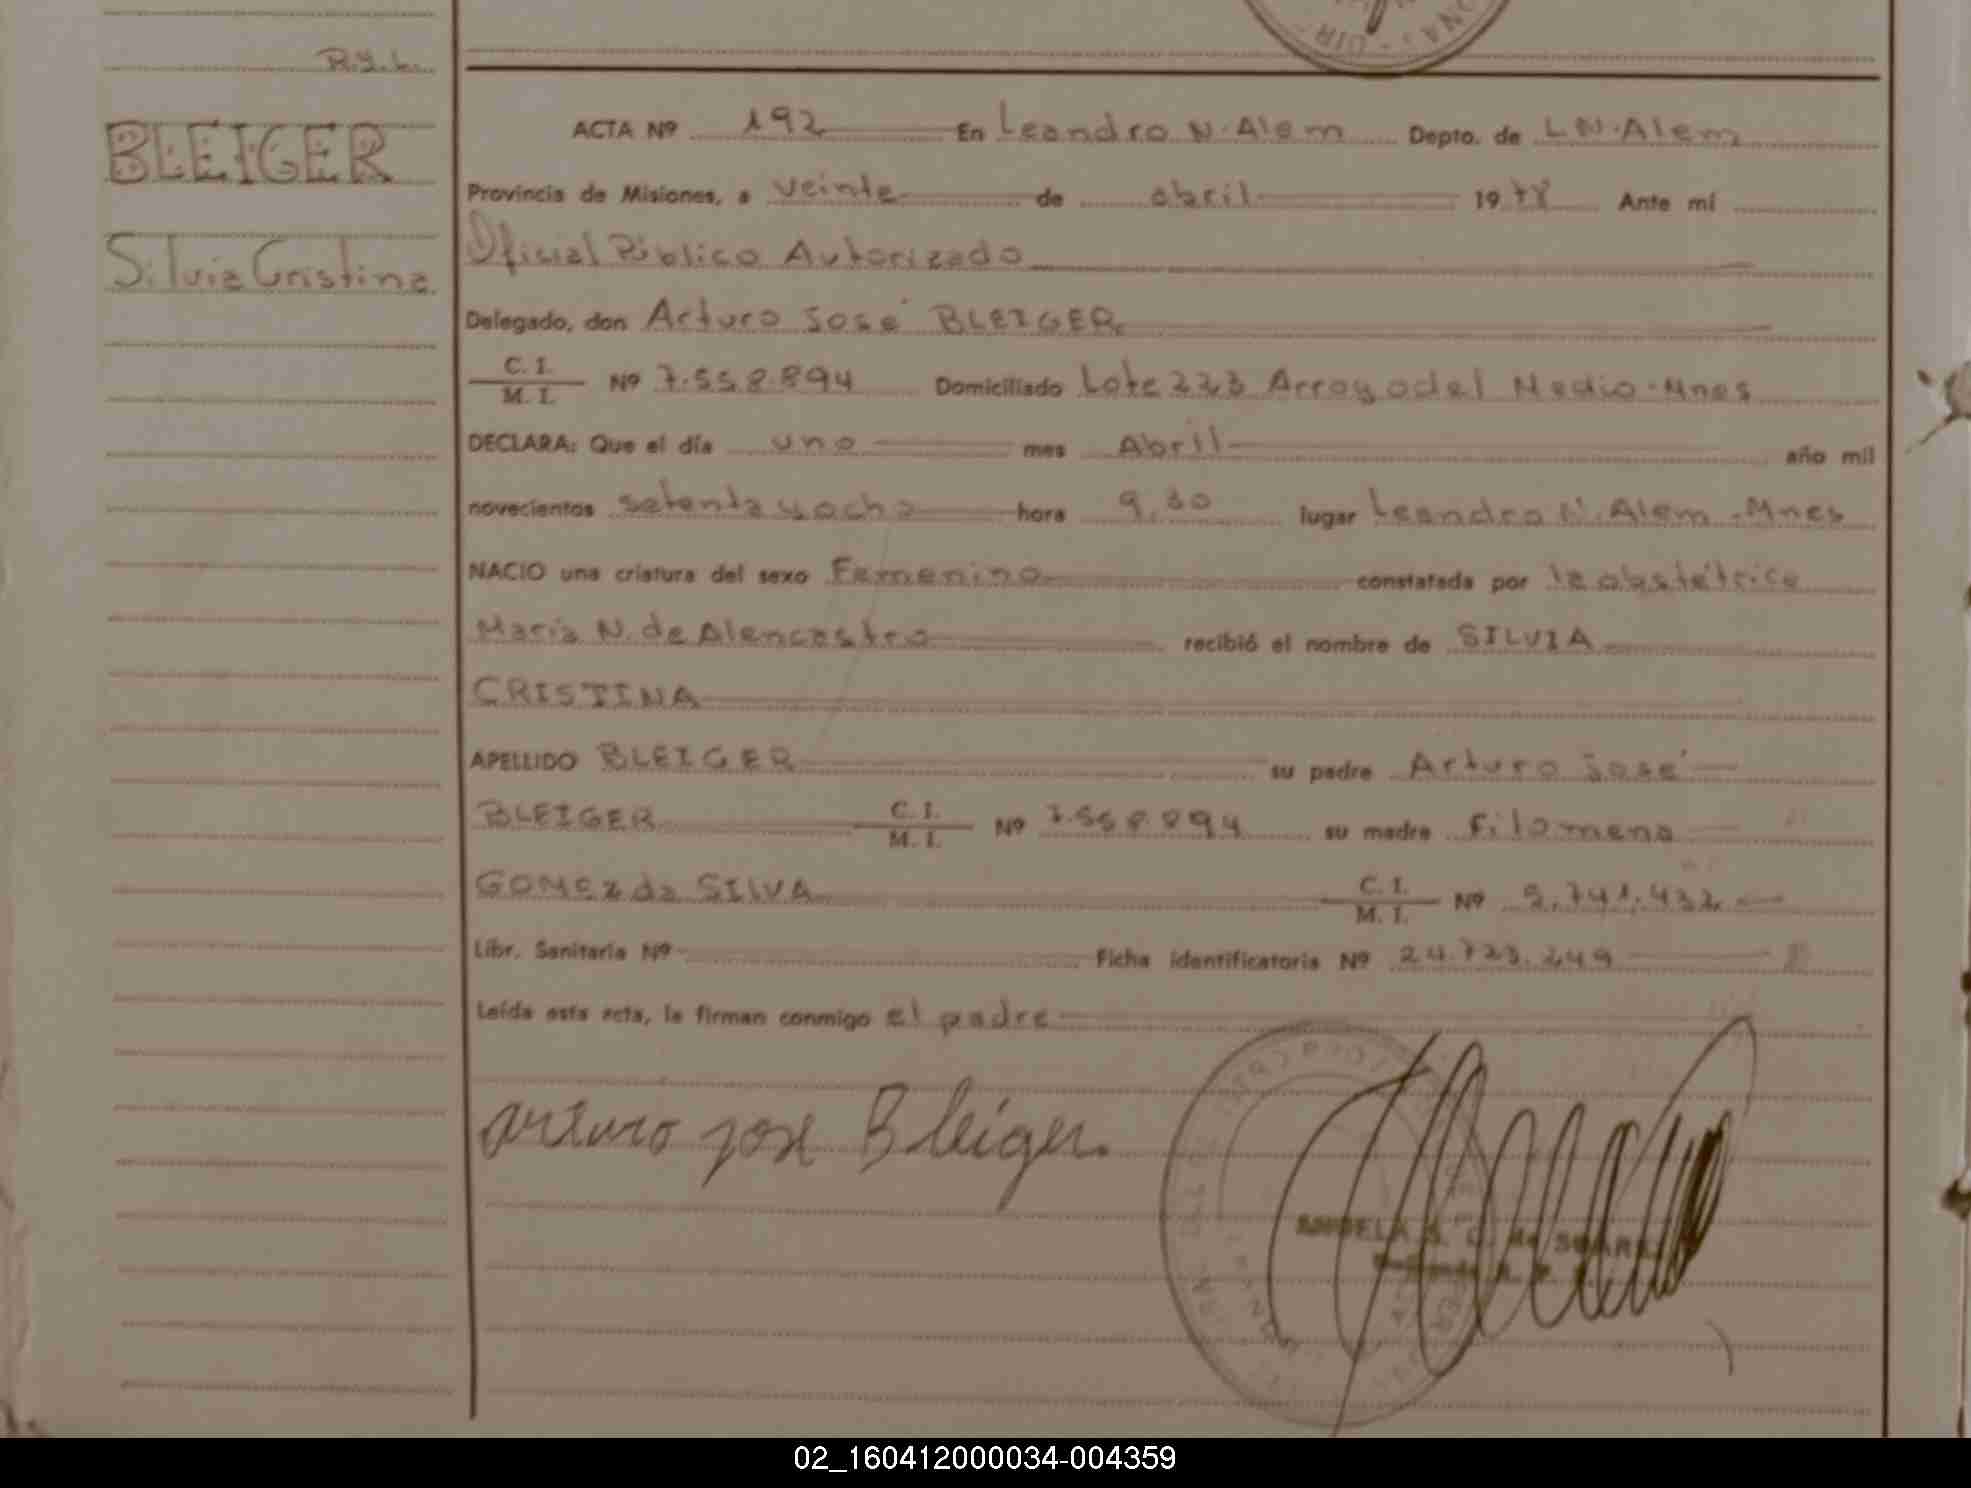 R.y.L.
BLEIGER
Silvia Cristina
ACTA Nº 192 En Leandro N. Alem Depto. de L.N. Alem
Provincia de Misiones, a veinte de abril 1978 Ante mí
Oficial Público Autorizado
Delegado, don Arturo José BLEIGER
C. I. / M. I. Nº 7.558.894 Domiciliado Lote 223 Arroyo del Medio - Mnes
DECLARA: Que el día uno mes Abril año mil
novecientos setenta y ocho hora 9,30 lugar Leandro N. Alem - Mnes
NACIO una criatura del sexo Femenino constatada por la obstétrica
María N. de Alencastro recibió el nombre de SILVIA
CRISTINA
APELLIDO BLEIGER su padre Arturo José
BLEIGER C. I. / M. I. Nº 7.558.894 su madre Filomena
GOMEZ da SILVA C. I. / M. I. Nº 5.741.432
Libr. Sanitaria Nº Ficha identificatoria Nº 24.723.249
Leída esta acta, la firman conmigo el padre
Arturo jose Bleiger.
02_160412000034-004359